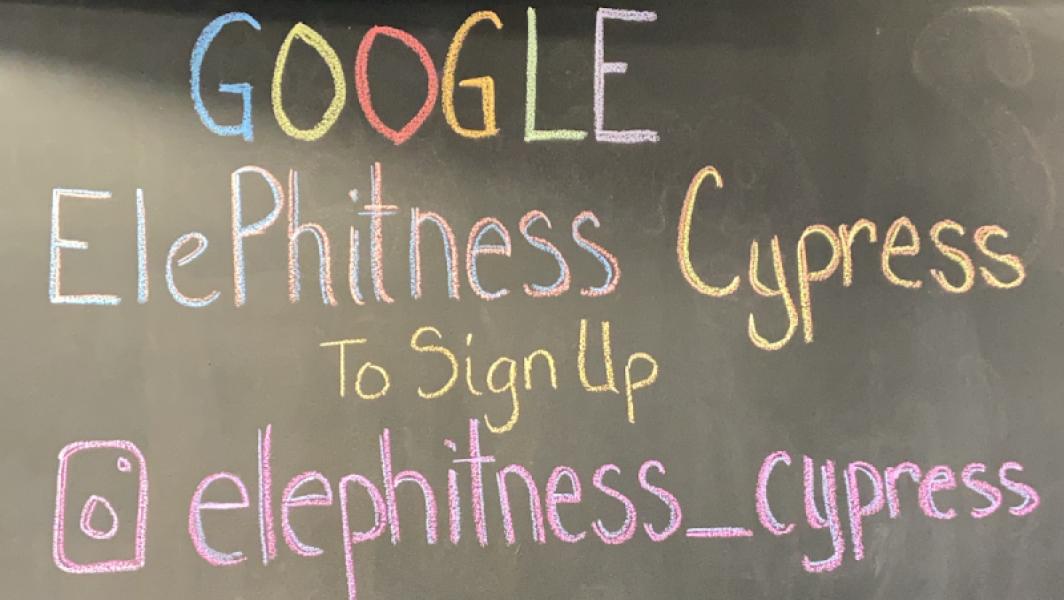 GOOGLE
ElePhitness Cypress
To Sign Up
elephitness_cypress